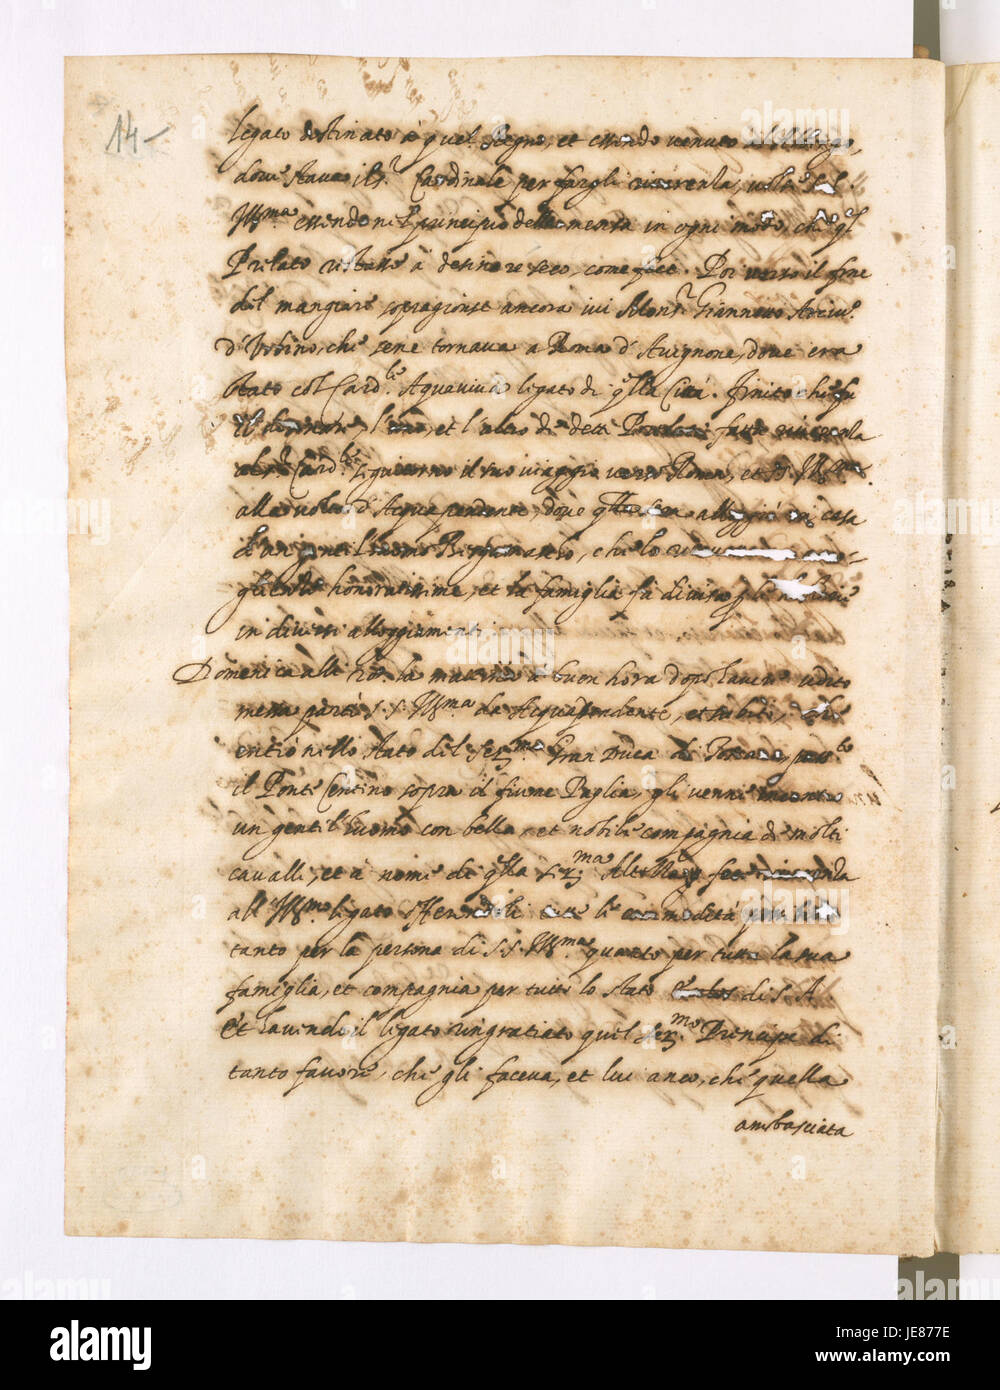 14
legato destinato à quel Regno, et essendo venuto
dove stava il S.r Cardinale per fargli riverenza, volse S.S.
Ill.ma essendo nel principio della mensa in ogni modo, che q.l
Prelato restasse à desinar seco, come fece. Poi verso il fine
del mangiare sopragionse ancora ivi Mons.r Giannotti Arciv.o
d'Urbino, che sene tornava a Roma d'Avignone, dove era
stato col Card.le Aquaviva legato di q.lla Città. finito che fu
il desinare, l'uno, et l'altro di detti Prelati fatta riverenza
al S.r Card.le seguirono il suo viaggio verso Roma, et S.S. Ill.ma
alla volta d'Acquapendente, dove alloggiò in casa
d'un gentil'huomo, che lo
gliendo honoratissime, et la famiglia fù
in diversi alloggiamenti
Domenica alli la mattina à buon hora dopò haver udito
messa partì S.S. Ill.ma da Acquapendente, et subito, che
entrò nello stato del Ser.mo Gran Duca di Toscana, passato
il Ponte Centino sopra il fiume Paglia, gli venne incontro
un gentil'huomo con bella, et nobile compagnia di molti
cavalli, et à nome di q.lla Ser.ma Altezza fece riverenza
all'Ill.mo legato offerendoli le commodità
tanto per la persona di S.S. Ill.ma quanto per tutta la sua
famiglia, et compagnia per tutto lo stato di S. A.
Et havendo il legato ringratiato quel Ser.mo Prencipe di
tanto favore, che gli faceva, et lui anco, che quella
ambasciata
alamy
Image ID: JE877E
www.alamy.com